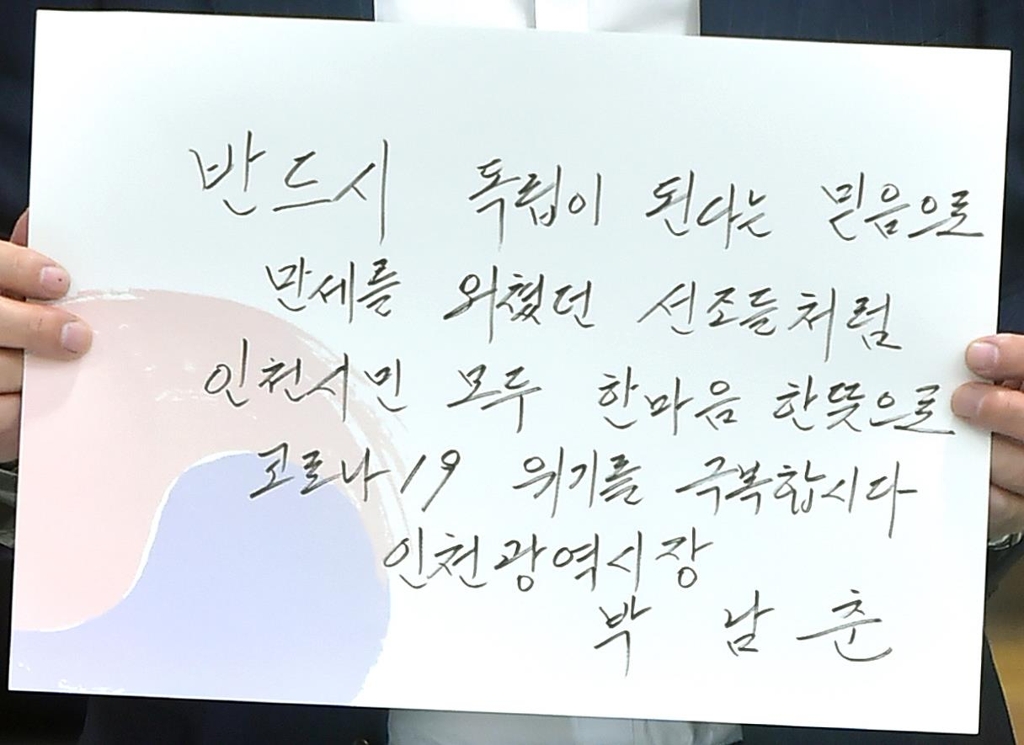 반드시 독립이 된다는 믿음으로
만세를 외쳤던 선조들처럼
인천시민 모두 한마음 한뜻으로
코로나19 위기를 극복합시다
인천광역시장
박 남 춘